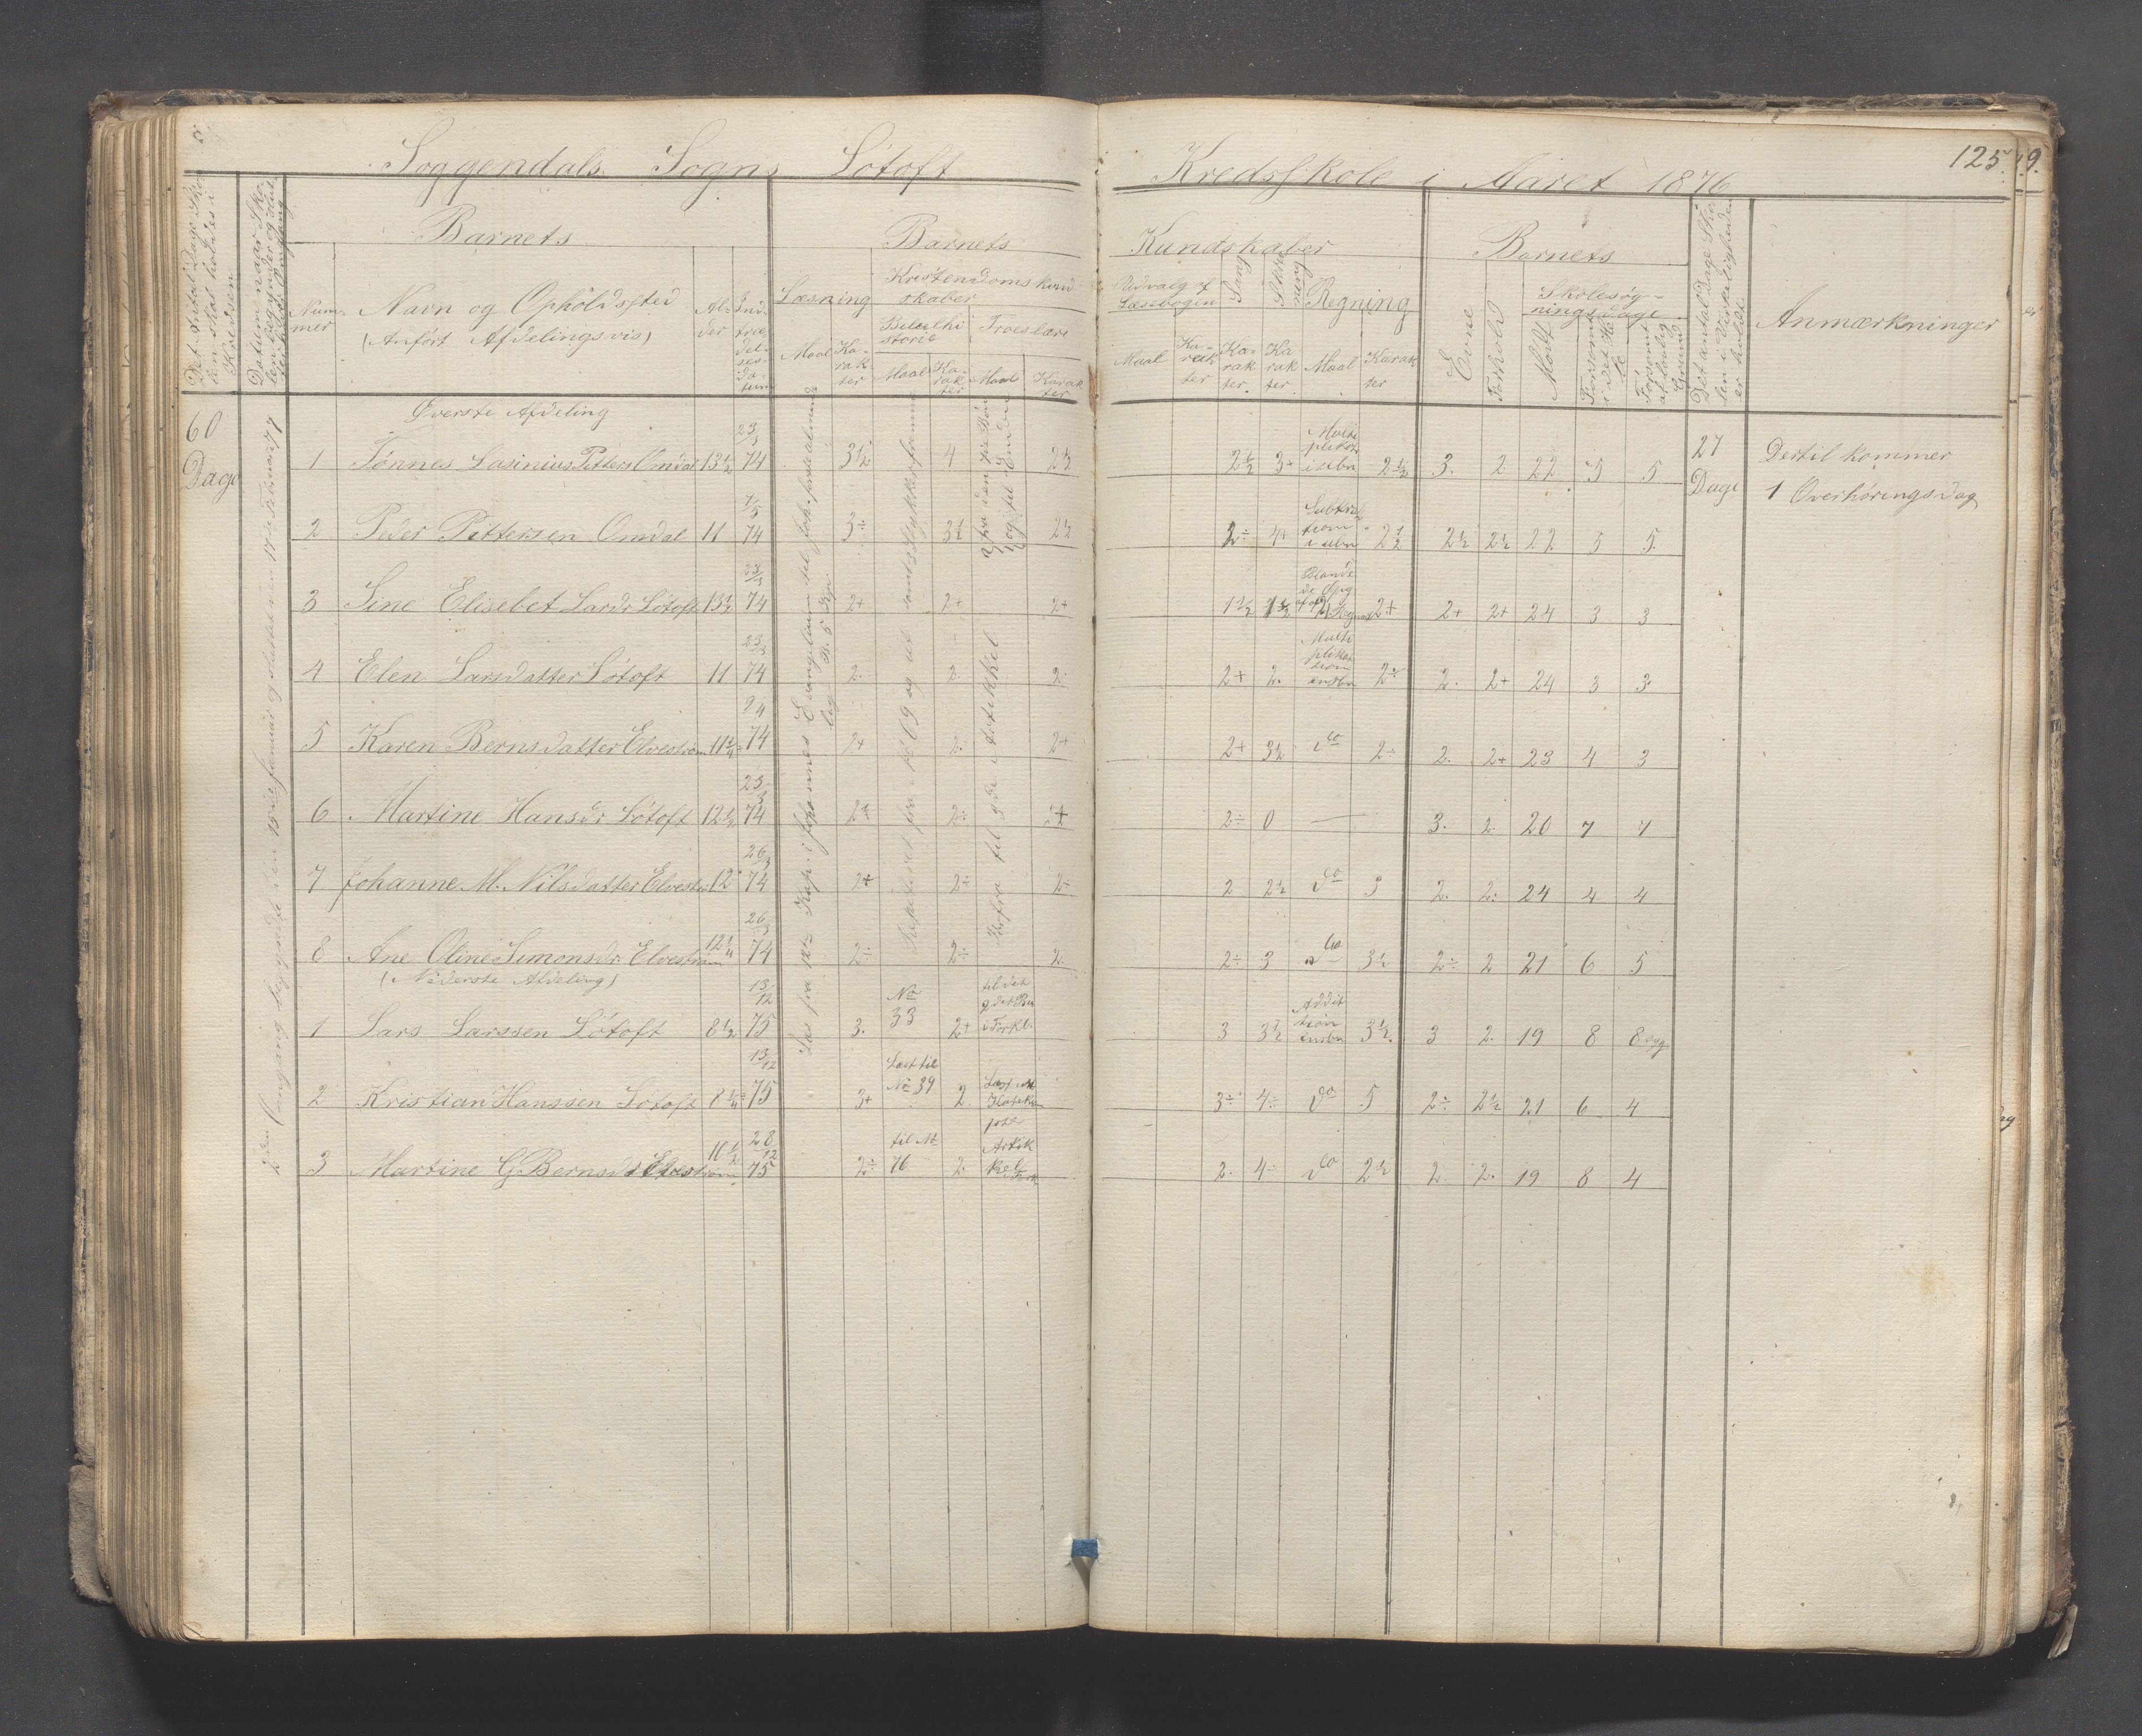 Soggendals Sogns Løtoft Kredsskole i Aaret 1876
125
Det Antal Dage Skolen skal holdes i Kredsen
Datum naar Skolen begynder og slutter hver Omgang
Barnets
Nummer
Navn og Opholdssted
(Anført Afdelingsvis)
Alder
Indtrædelsesdatum
Barnets Kundskaber
Læsning
Maal
Karakter
Kristendomskundskaber
Bibelhistorie
Maal
Karakter
Troeslære
Maal
Karakter
Udvalg af Læsebogen
Maal
Karakter
Sang
Karakter
Skrivning
Karakter
Regning
Maal
Karakter
Barnets
Evne
Forhold
Skolesøgningsdage
Mødt
Forsømt i det Hele
Forsømt af lovlig Grund
Det antal Dage Skolen i Virkeligheden er holdt
Anmærkninger
60 Dage
Øverste Afdeling
1 Tønnes Sasinius Petters Omdal 13½ 23/3 74 3½ 4 2½ 2½ 3+ Multiplikation i ubn 2½ 3. 2 22 5 5
27 Dage
Dertil kommer
1 Overhøringsdag
2 Peder Pettersen Omdal 11 7/5 74 3÷ 3½ 2½ 2÷ 4+ Subtraktion i ubn 2½ 2½ 2½ 22 5 5.
3 Sine Elisebet Larsdr Løtoft 13½ 23/3 74 2+ 2+ 2+ 1½ 1½ 2+ 2+ 2+ 24 3 3
4 Elen Larsdatter Løtoft 11 23/3 74 2. 2. 2. 2+ 2. Multiplikation ensbn 2÷ 2. 2+ 24 3 3
5 Karen Bernsdatter Elvestrøm 11¼ 74 2+ 2. 2+ 2+ 3½ do 2÷ 2. 2+ 23 4 3
6 Martine Hansdr Løtoft 12½ 23/3 74 2÷ 2÷ 2÷ 0 — 3. 2. 20 7 7
7 Johanne M. Nilsdatter Elvestr 12 26/3 74 2+ 2÷ 2÷ 2 2½ do 3 2. 2. 24 4 4
8 Ane Oline Simonsdr. Elvestrøm 12¼ 26/3 74 2÷ 2÷ 2. 2÷ 3 do 3½ 2÷ 2 21 6 5
(Nederste Afdeling)
1 Lars Larssen Løtoft 8½ 13/12 75 3. No 33 2+ 3 3½ Addition ensbn 3½. 3 2. 19 8 8 syg
2 Kristian Hanssen Løtoft 8¼ 13/12 75 3+ Læst til No 39 2. 3÷ 4÷ do 5 2÷ 2½ 21 6 4
3 Martine G Bernsdr Elvestrøm 10½ 28/12 75 2÷ til No 76 2. Artikkel 2. 4÷ do 2½ 2 2. 19 8 4
2den Omgang begyndte den 15de Januar og sluttet den 17de Februar 77
Læs fra 12te Kap. i Johannes Evangelium til
Repeteret fra No 69 og ud samt Stykker forinni
Forfra til 3die Artikkel